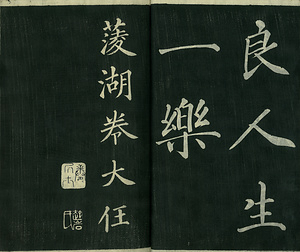 良人生
一樂
菱湖卷大任